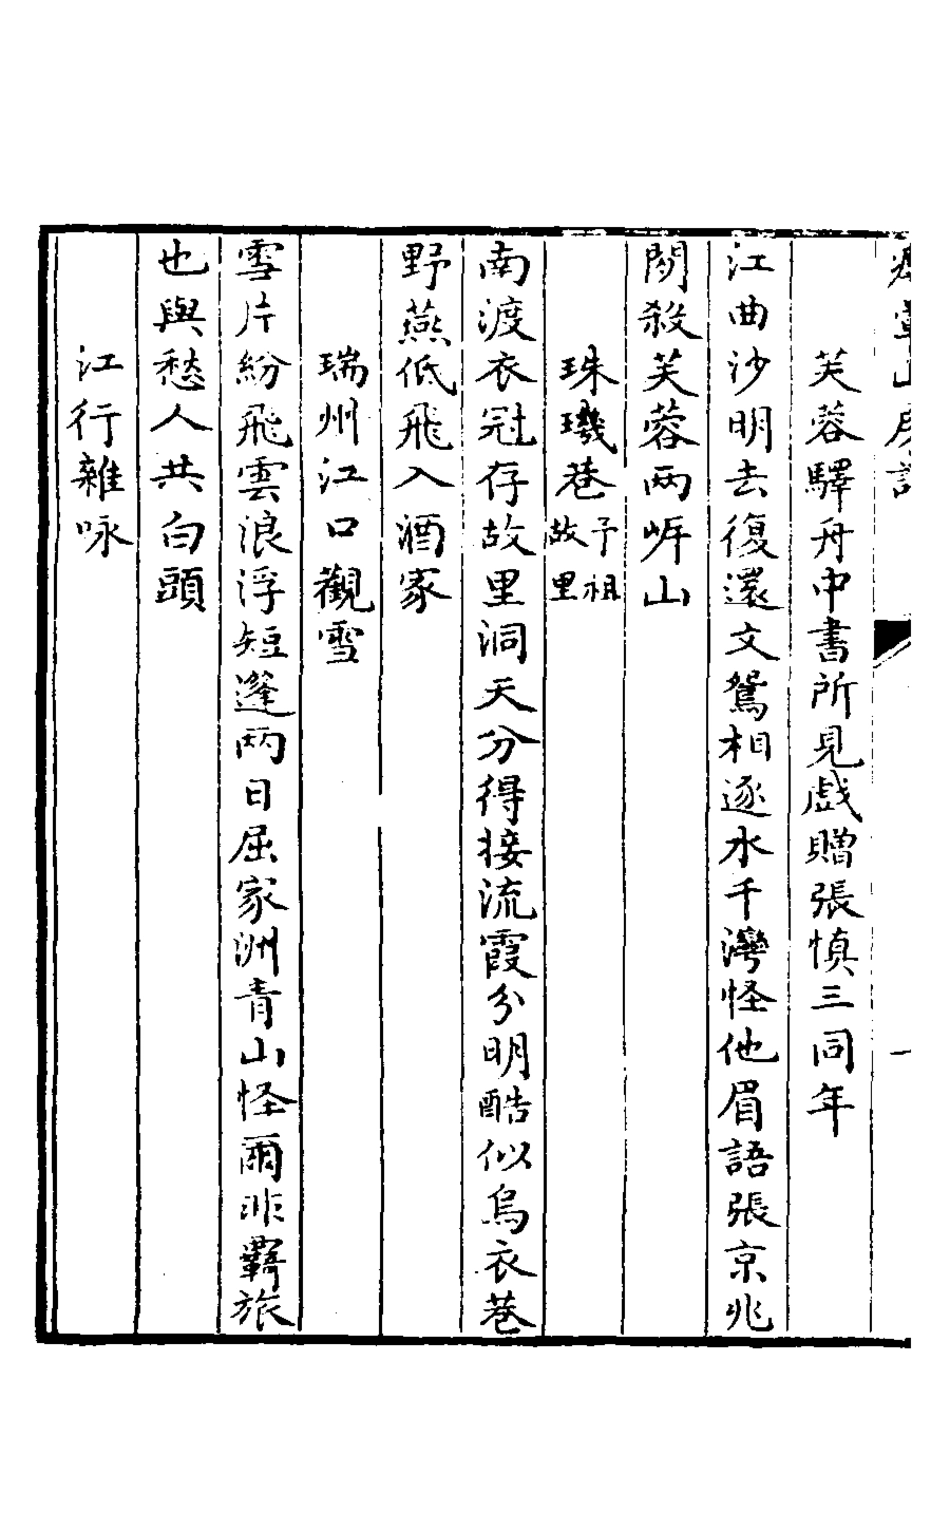 芙蓉驛舟中書所見戲贈張慎三同年
江曲沙明去復還文鴛相逐水千灣怪他眉語張京兆
閱殺芙蓉兩㟁山
珠璣巷予祖故里
南渡衣冠存故里洞天分得接流霞分明酷似烏衣巷
野燕低飛入酒家
瑞州江口觀雪
雪片紛飛雲浪浮短篷兩日屈家洲青山怪爾非羇旅
也與愁人共白頭
江行雜咏